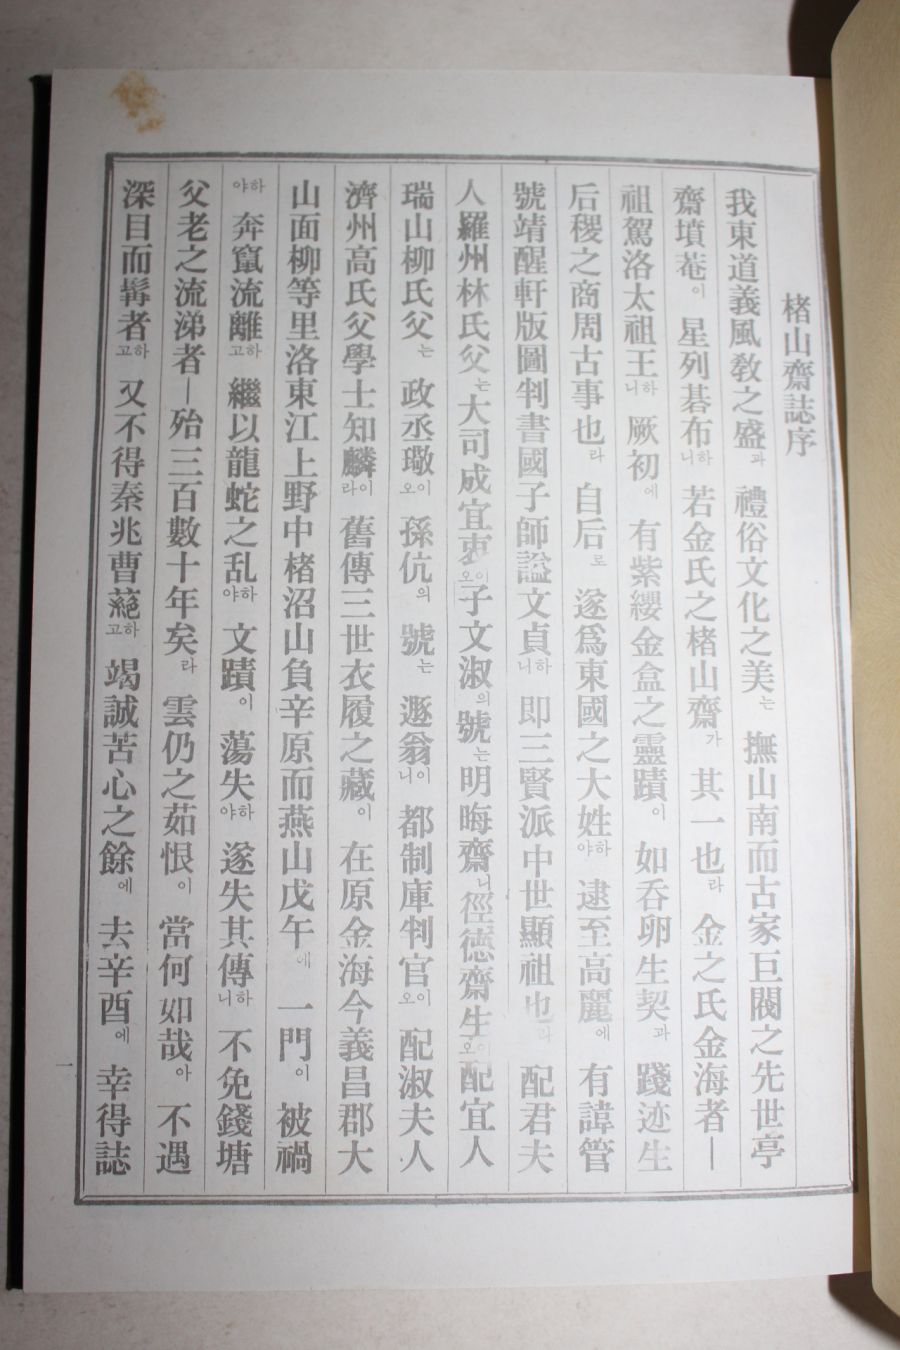 楮山齋誌序
我東道義風敎之盛과 禮俗文化之美는 撫山南而古家巨閥之先世亭
齋墳菴이 星列碁布하니 若金氏之楮山齋가 其一也라 金之氏金海者ㅡ
祖駕洛太祖王하니 厥初에 有紫纓金盒之靈蹟이 如呑卵生契과 踐迹生
后稷之商周古事也라 自后로 遂爲東國之大姓하야 逮至高麗에 有諱管
號靖醒軒版圖判書國子師謚文貞하니 即三賢派中世顯祖也라 配君夫
人羅州林氏父는大司成宜衷이오子文淑의號는明晦齋니徑德齋生이오配宜人
瑞山柳氏父는 政丞璥이오 孫伉의 號는 遯翁이니 都制庫判官이오 配淑夫人
濟州高氏父學士知麟이라 舊傳三世衣履之藏이 在原金海今義昌郡大
山面柳等里洛東江上野中楮沼山負辛原而燕山戊午에 一門이 被禍
하야 奔竄流離하고 繼以龍蛇之乱하야 文蹟이 蕩失하야 遂失其傳하니 不免錢塘
父老之流涕者ㅡ殆三百數十年矣라 雲仍之茹恨이 當何如哉아 不遇
深目而髯者하고 又不得秦兆曹蕝하고 竭誠苦心之餘에 去辛酉에 幸得誌
一